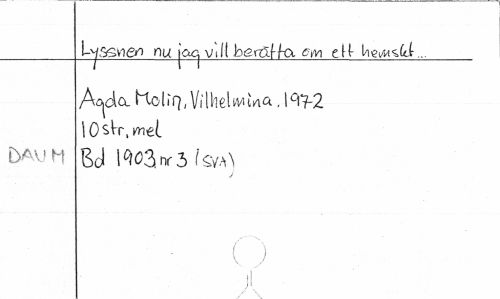 Lyssnen nu jag vill berätta om ett hemskt...
Agda Molin, Vilhelmina, 1972
10 str, mel
DAUM Bd 1903, nr 3 (SVA)